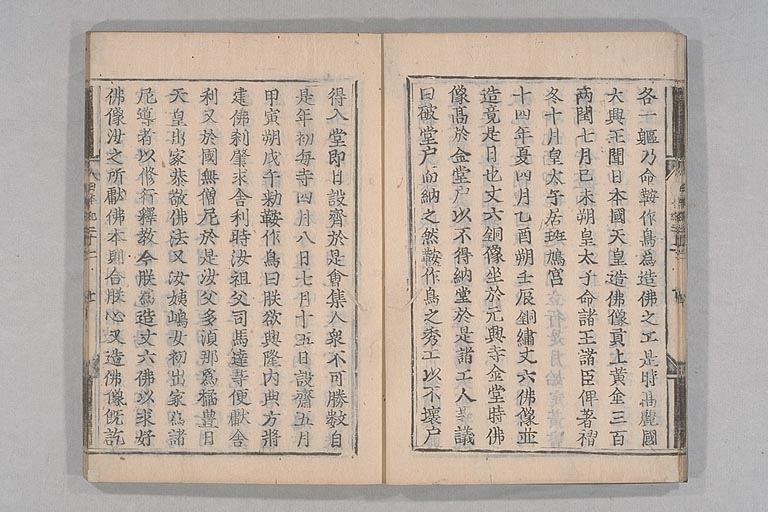 各一軀乃命鞍作鳥爲造佛之工是時髙麗國
大興王聞日本國天皇造佛像貢上黃金三百
兩閏七月己未朔皇太子命諸王諸臣俾著褶
冬十月皇太子居班鳩宮
十四年夏四月乙酉朔壬辰銅繡丈六佛像並
造竟是日也丈六銅像坐於元興寺金堂時佛
像髙於金堂戸以不得納堂於是諸工人等議
曰破堂戸而納之然鞍作鳥之秀工以不壞戸
得入堂即日設齋於是會集人衆不可勝數自
是年初每寺四月八日七月十五日設齋五月
甲寅朔戊午勅鞍作鳥曰朕欲興隆内典方將
建佛刹肇求舍利時汝祖父司馬達等便獻舍
利又於國無僧尼於是汝父多湏那爲橘豊日
天皇出家恭敬佛法又汝姨嶋女初出家爲諸
尼導者以修行釋教今朕爲造丈六佛以求好
佛像汝之所獻佛本則合朕心又造佛像既訖